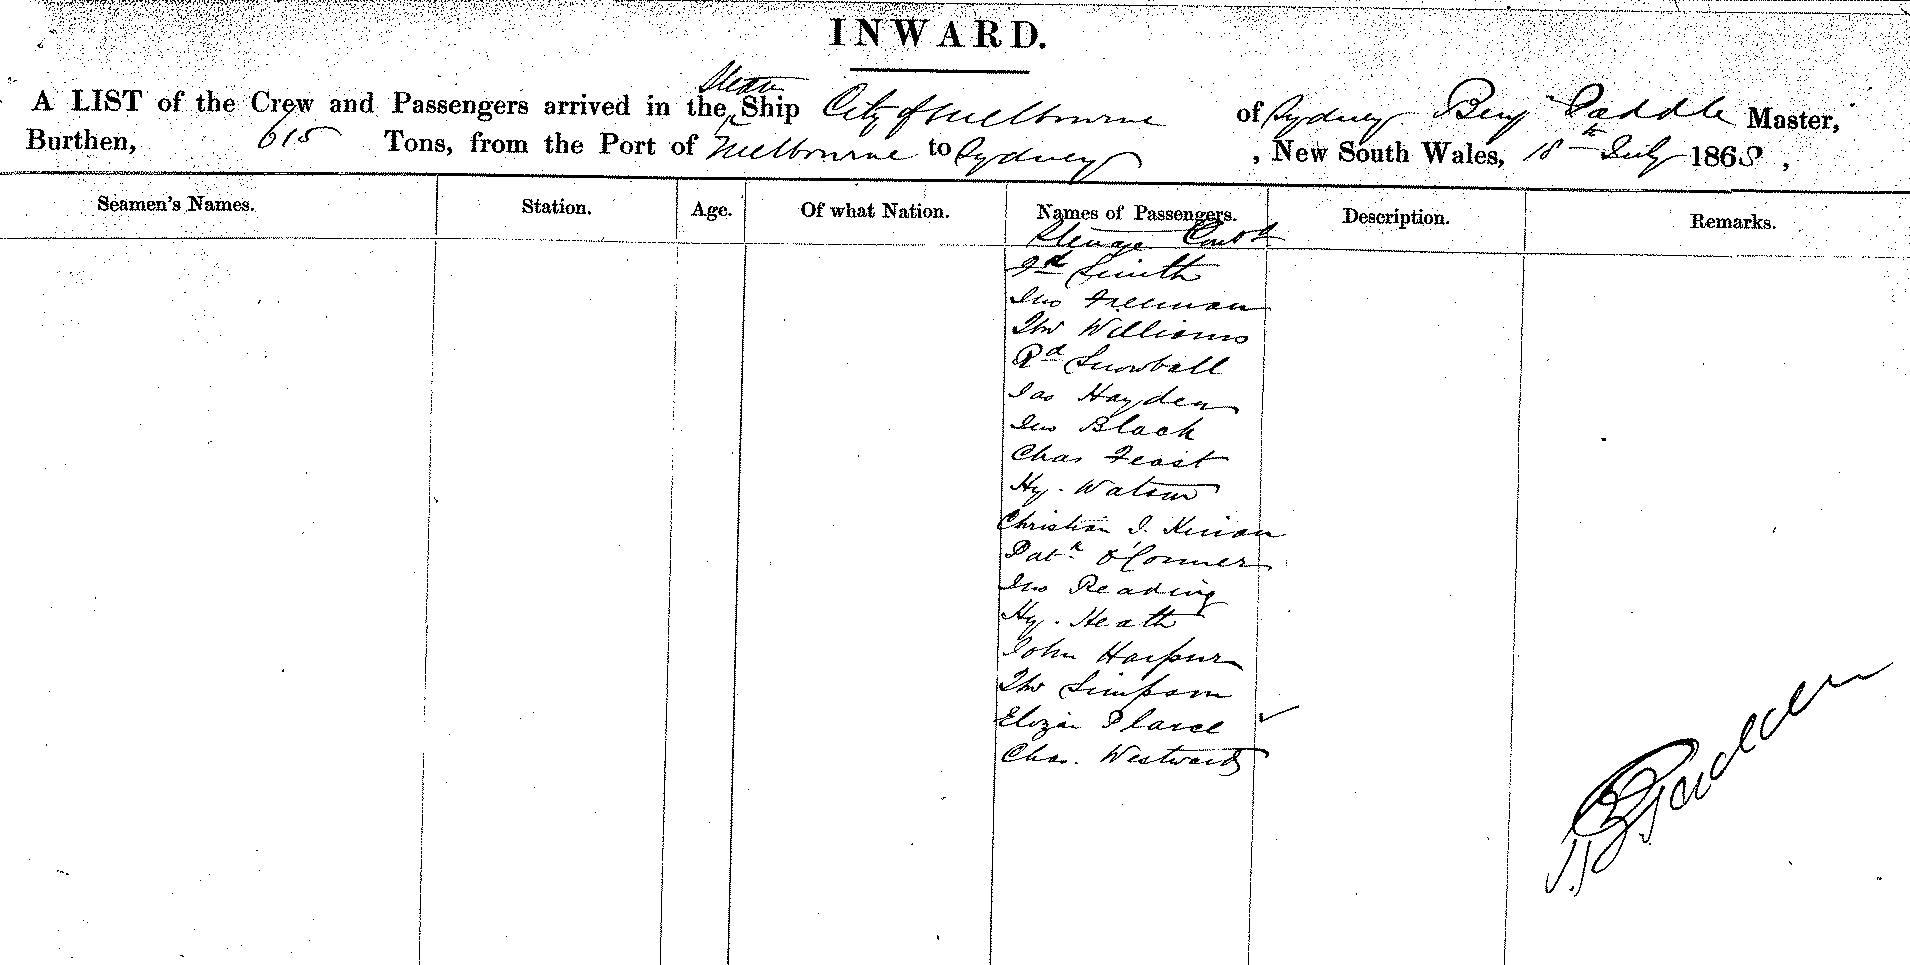 INWARD.
A LIST of the Crew and Passengers arrived in the Steam Ship City of Melbourne of Sydney Benj Paddle Master,
Burthen, 615 Tons, from the Port of Melbourne to Sydney, New South Wales, 18th July 1868,
Seamen's Names. Station. Age. Of what Nation. Names of Passengers. Description. Remarks.
Steerage Contd
Smith
Jno Freeman
Thos Williams
Rd Snowball
Jas Hayden
Jno Black
Chas Feast
Hy. Watson
Christian J.
Patk O'Conner
Jno Reading
Hy. Heath
John Harpur
Thos Simpson
Pearce
Chas. Westward